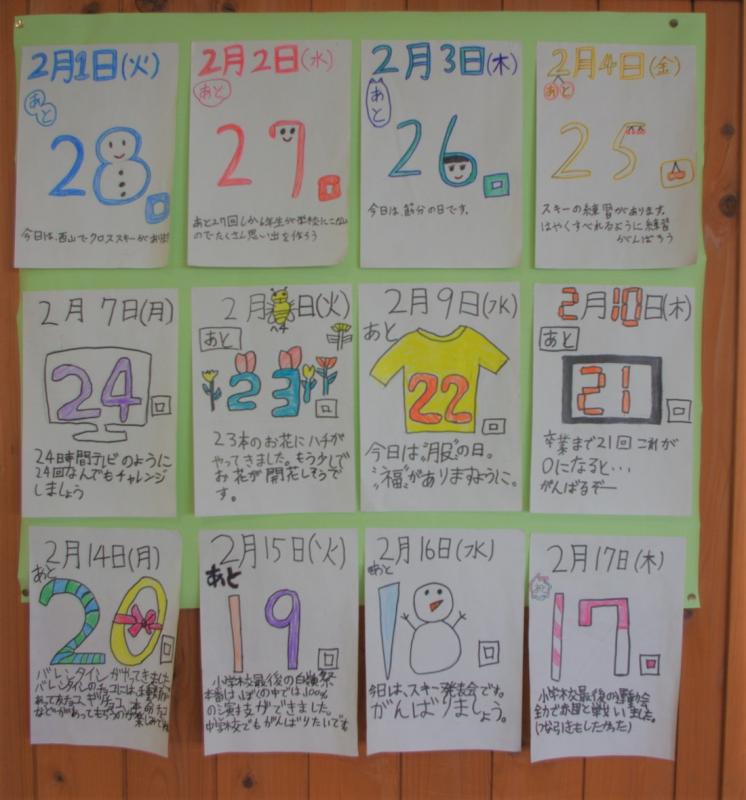 2月1日(火)
あと
28回
今日は、西山でクロススキーがあります
2月2日(水)
あと
27回
あと27回しか6年生が学校にこない
のでたくさん思い出を作ろう
2月3日(木)
あと
26回
今日は、節分の日です。
2月4日(金)
あと
25回
スキーの練習があります。
はやくすべれるように練習
がんばろう
2月7日(月)
24回
24時間テレビのように
24回なんでもチャレンジ
しましょう
2月 日(火)
ハチ
あと
23回
23本のお花にハチが
やってきました。もう少しで
お花が開花しそうで
す。
2月9日(水)
あと
22回
今日は"服"の日。
"福"がありますように。
2月10日(木)
あと
21回
卒業まで21回これが
0になると…
がんばるぞー
2月14日(月)
あと
20回
バレンタインがやってきました
バレンタインのチョコには、
あって友チョコ、ギリチョコ、本命チョコ
などがあってもらうのが楽しみです
2月15日(火)
あと
19回
小学校最後の白嶺祭
本番は、ぼくの中では、100%
の演技ができました。
中学校でもがんばりたいです
2月16日(水)
あと
18回
今日は、スキー発表会です。
がんばりましょう。
2月17日(木)
あと
17回
小学校最後の運動会
全力で赤団と戦いました。
(つな引きもしたかった)